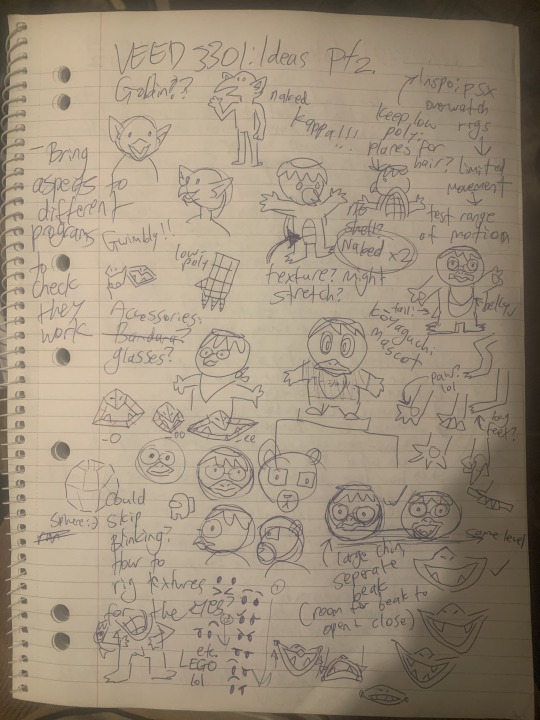 VEED 3301: Ideas Pt2.
Goblin??
naked
Kappa!!!
Inspo: PSX
overwatch
rigs
limited
movement
test range
of motion
Keep low
poly:
places for
hair?
- Bring
aspects to
different
programs
to
check
they
work
Gwimbly!!
low-
poly
no
shell?
Naked x2
texture? Might
stretch?
Accessories:
Bandana?
glasses?
tail?
belly
mascot
paw?
lol
big
feet?
-O
-oo
-ee
Sphere :)
Could
skip
Blinking?
How to
rig textures
for the eyes?
etc.
LEGO
lol
same level
large chin,
seperate
beak
(room for beak to
open & close)